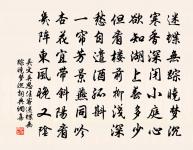 迷蝶無蹤曉夢沉
寒香深閉小庭心
欲知湖上春多少
但看樓前柳淺深
愁自遣酒孤斟
一簾芳景燕同吟
杏花宜帶斜陽看
幾陣東風晚又陰
吳文英思佳客迷蝶無
蹤曉夢沉